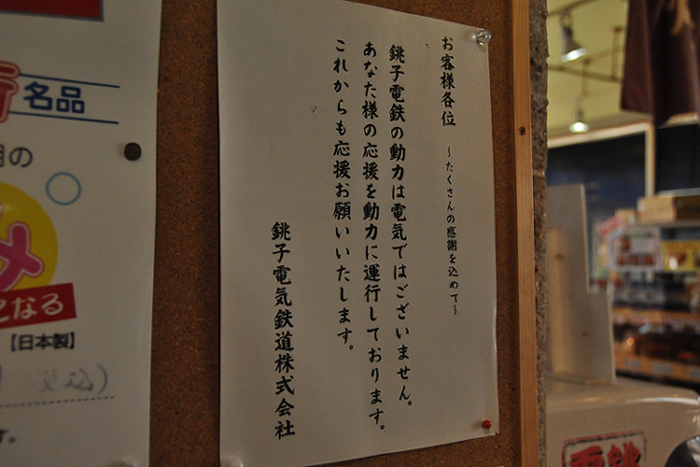 お客様各位 ～たくさんの感謝を込めて～
銚子電鉄の動力は電気ではございません。
あなた様の応援を動力に運行しております。
これからも応援お願いいたします。
銚子電気鉄道株式会社
名品
となる
【日本製】